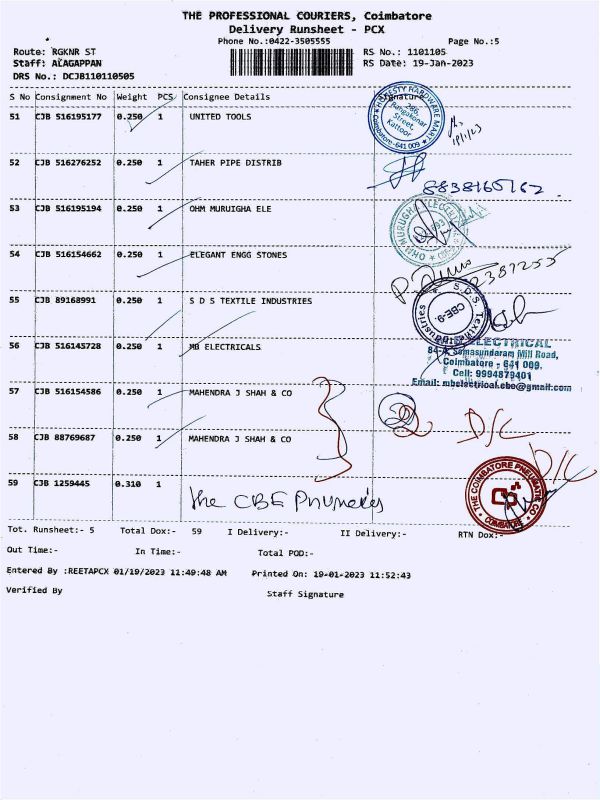 THE PROFESSIONAL COURIERS, Coimbatore
Delivery Runsheet - PCX
Phone No.:0422-3505555 Page No.:5
Route: RGKNR ST RS No.: 1101105
Staff: ALAGAPPAN RS Date: 19-Jan-2023
DRS No.: DCJB110110505
S No Consignment No Weight PCS Consignee Details Signature
51 CJB 516195177 0.250 1 UNITED TOOLS
HONESTY HARDWARE MART
286, Rangakonar Street, Kattoor
Coimbatore-641 009
19/1/23
52 CJB 516276252 0.250 1 TAHER PIPE DISTRIB
8838165762
53 CJB 516195194 0.250 1 OHM MURUIGHA ELE
54 CJB 516154662 0.250 1 ELEGANT ENGG STONES
55 CJB 89168991 0.250 1 S D S TEXTILE INDUSTRIES
S.D.S. Textile Industries
CBE-9.
56 CJB 516145728 0.250 1 MB ELECTRICALS
ELECTRICAL
84-A, Somasundaram Mill Road,
Coimbatore - 641 009.
Cell: 9994879401
Email: mbelectrical.cbe@gmail.com
57 CJB 516154586 0.250 1 MAHENDRA J SHAH & CO
D/C
58 CJB 88769687 0.250 1 MAHENDRA J SHAH & CO
D/C
59 CJB 1259445 0.310 1 The CBE
THE COIMBATORE PNEUMATIC CO
COIMBATORE
Tot. Runsheet:- 5 Total Dox:- 59 I Delivery:- II Delivery:- RTN Dox:-
Out Time:- In Time:- Total POD:-
Entered By :REETAPCX 01/19/2023 11:49:48 AM Printed On: 19-01-2023 11:52:43
Verified By Staff Signature